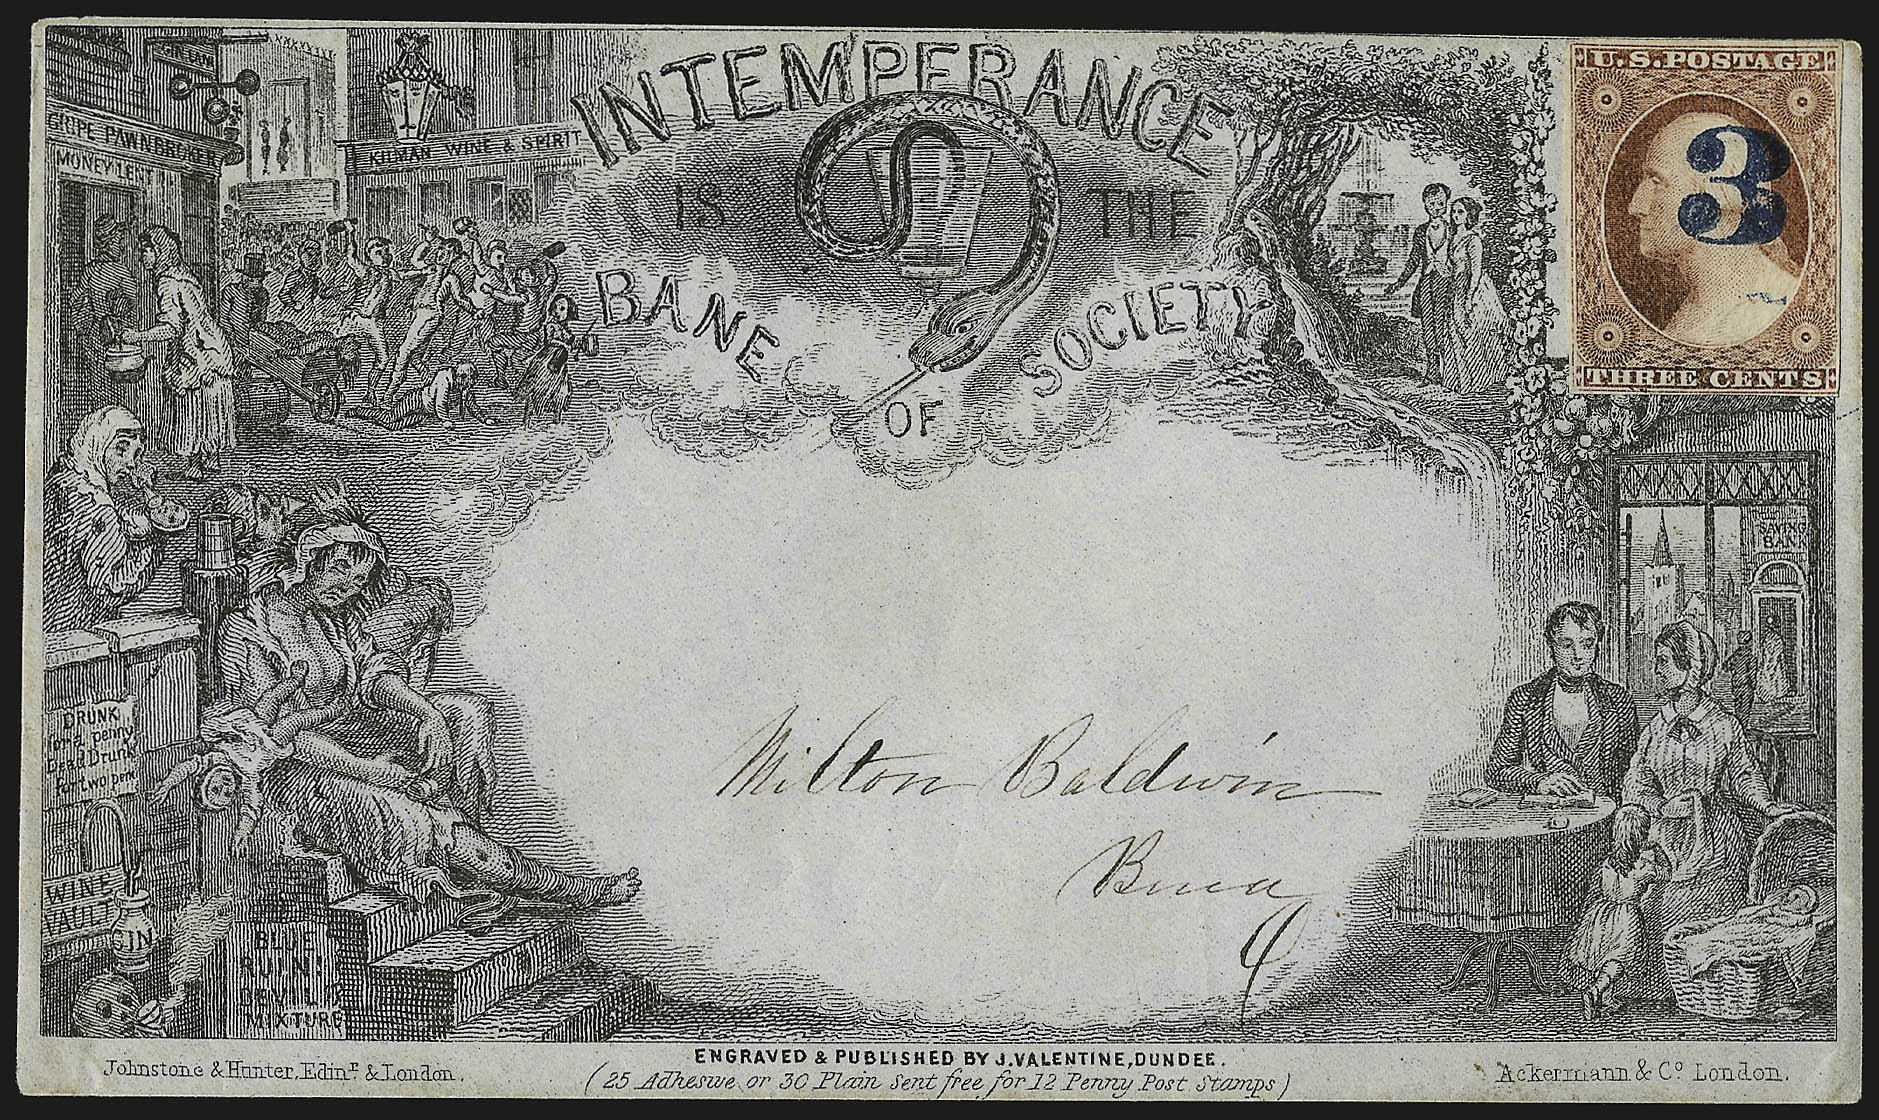 INTEMPERANCE
IS THE
BANE OF SOCIETY
U.S. POSTAGE
3
THREE CENTS
GRIPE PAWNBROKER
MONEY LENT
KILMAN WINE & SPIRIT
SAVING
BANK
DRUNK
for a penny
Dead Drunk
for two pen
WINE
VAULT
GIN
BLUE
RUIN!
DEVIL'S
MIXTURE
Milton Baldwin
ENGRAVED & PUBLISHED BY J. VALENTINE, DUNDEE.
Johnstone & Hunter, Edinr. & London.
(25 Adhesive or 30 Plain Sent free for 12 Penny Post Stamps)
Ackermann & Co London.